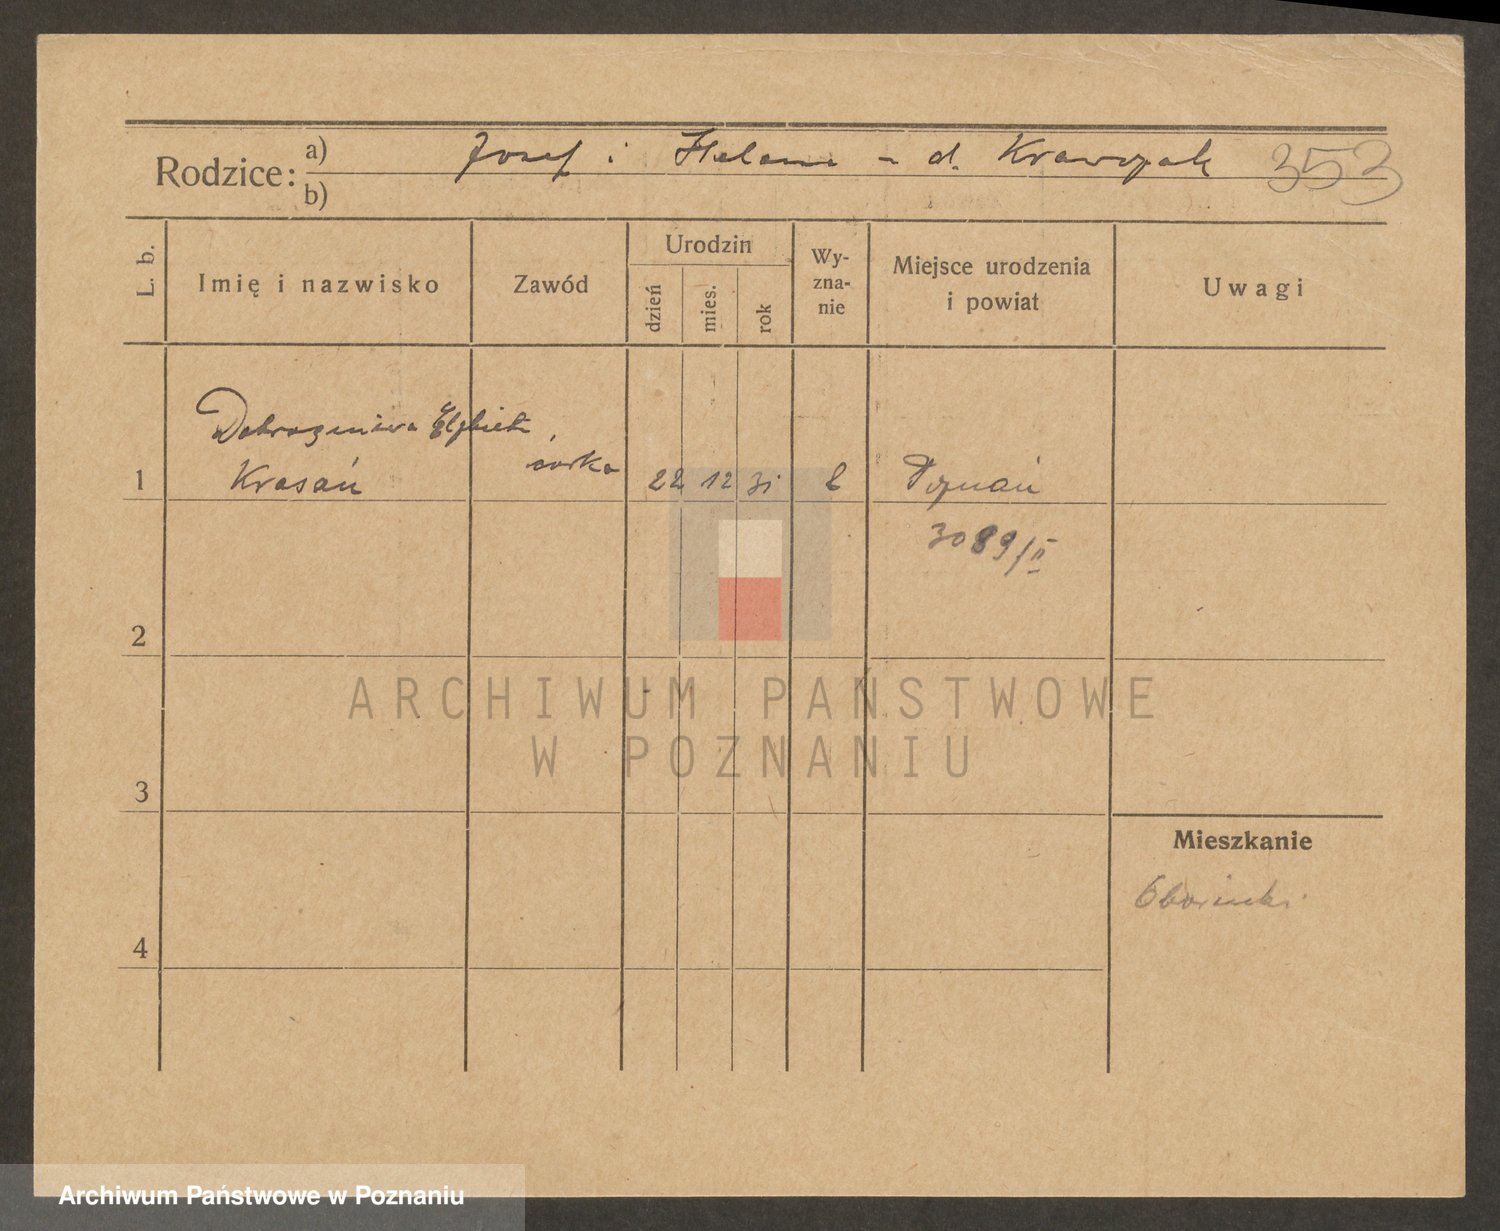 Rodzice: a) Josef i Helena - d. Krawczak 353
b)
L. b.
Imię i nazwisko
Zawód
Urodzin
dzień
mies.
rok
Wy-
zna-
nie
Miejsce urodzenia
i powiat
Uwagi
Elżbieta
1 Krasań córka 22 12 31 Poznań
3089/II
2
3
Mieszkanie
4
ARCHIWUM PAŃSTWOWE
W POZNANIU
Archiwum Państwowe w Poznaniu